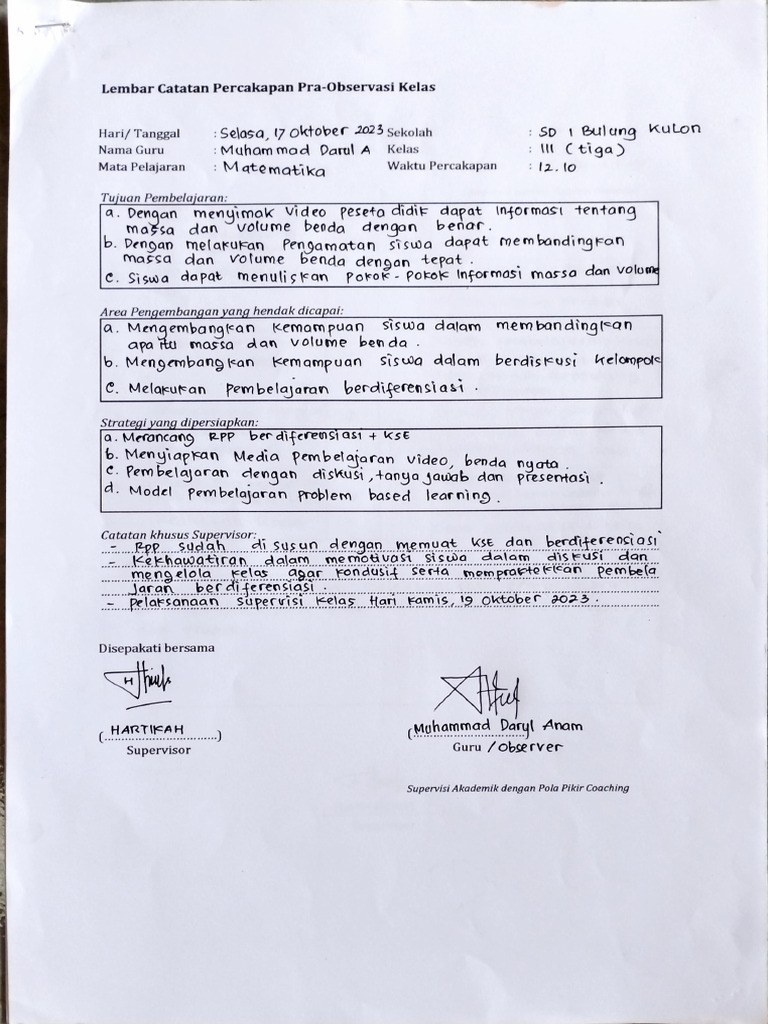 Lembar Catatan Percakapan Pra-Observasi Kelas
Hari/ Tanggal : Selasa, 17 Oktober 2023 Sekolah : SD 1 Bulung Kulon
Nama Guru : Muhammad Darul A Kelas : III (tiga)
Mata Pelajaran : Matematika Waktu Percakapan : 12.10
Tujuan Pembelajaran:
a. Dengan menyimak Video peseta didik dapat Informasi tentang
massa dan volume benda dengan benar.
b. Dengan melakukan Pengamatan siswa dapat membandingkan
massa dan volume benda dengan tepat.
c. Siswa dapat menuliskan Pokok-pokok Informasi massa dan volume
Area Pengembangan yang hendak dicapai:
a. Mengembangkan Kemampuan siswa dalam membandingkan
apa itu massa dan volume benda.
b. Mengembangkan Kemampuan siswa dalam berdiskusi Kelompok
c. Melakukan Pembelajaran berdiferensiasi.
Strategi yang dipersiapkan:
a. Merancang RPP berdiferensiasi + KSE
b. Menyiapkan Media Pembelajaran video, benda nyata.
c. Pembelajaran dengan diskusi, tanya jawab dan presentasi.
d. Model pembelajaran problem based learning.
Catatan khusus Supervisor:
- RPP sudah di susun dengan memuat KSE dan berdiferensiasi
- Kekhawatiran dalam memotivasi siswa dalam diskusi dan
mengelola kelas agar kondusif serta mempraktekkan pembela
jaran berdiferensiasi.
- Pelaksanaan supervisi Kelas Hari Kamis, 19 Oktober 2023.
Disepakati bersama
(HARTIKAH) (Muhammad Daryl Anam
Supervisor Guru /Observer
Supervisi Akademik dengan Pola Pikir Coaching